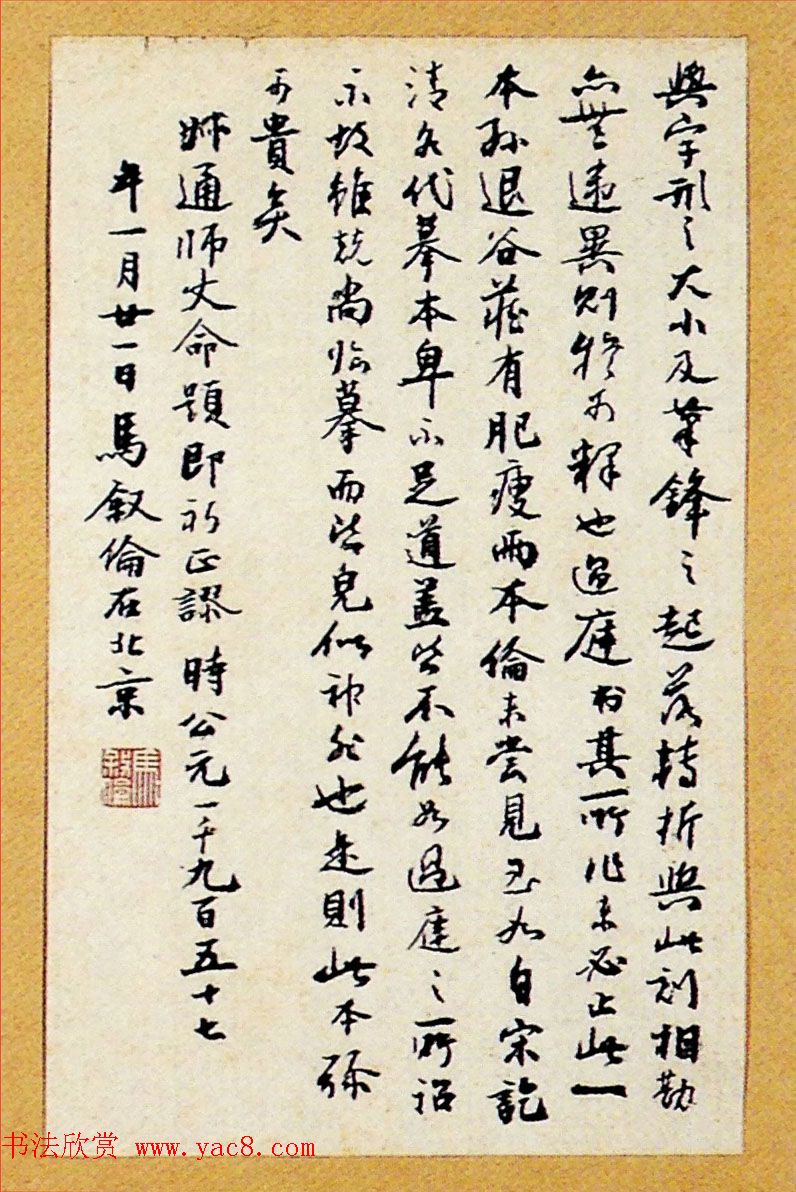 與字形之大小及筆鋒之起落轉折與此刻相勘
亦無違異則可釋也過庭於其所作未必止此一
本孫退谷藏有肥瘦兩本倫未嘗見至如自宋訖
清各代摹本卑不足道蓋皆不能如過庭之所詔
示故雖競尚臨摹而皆皃似神非也是則此本彌
可貴矣
通師丈命題即祈正謬 時公元一千九百五十七
年一月廿一日馬叙倫在北京
馬叙倫
书法欣赏 www.yac8.com